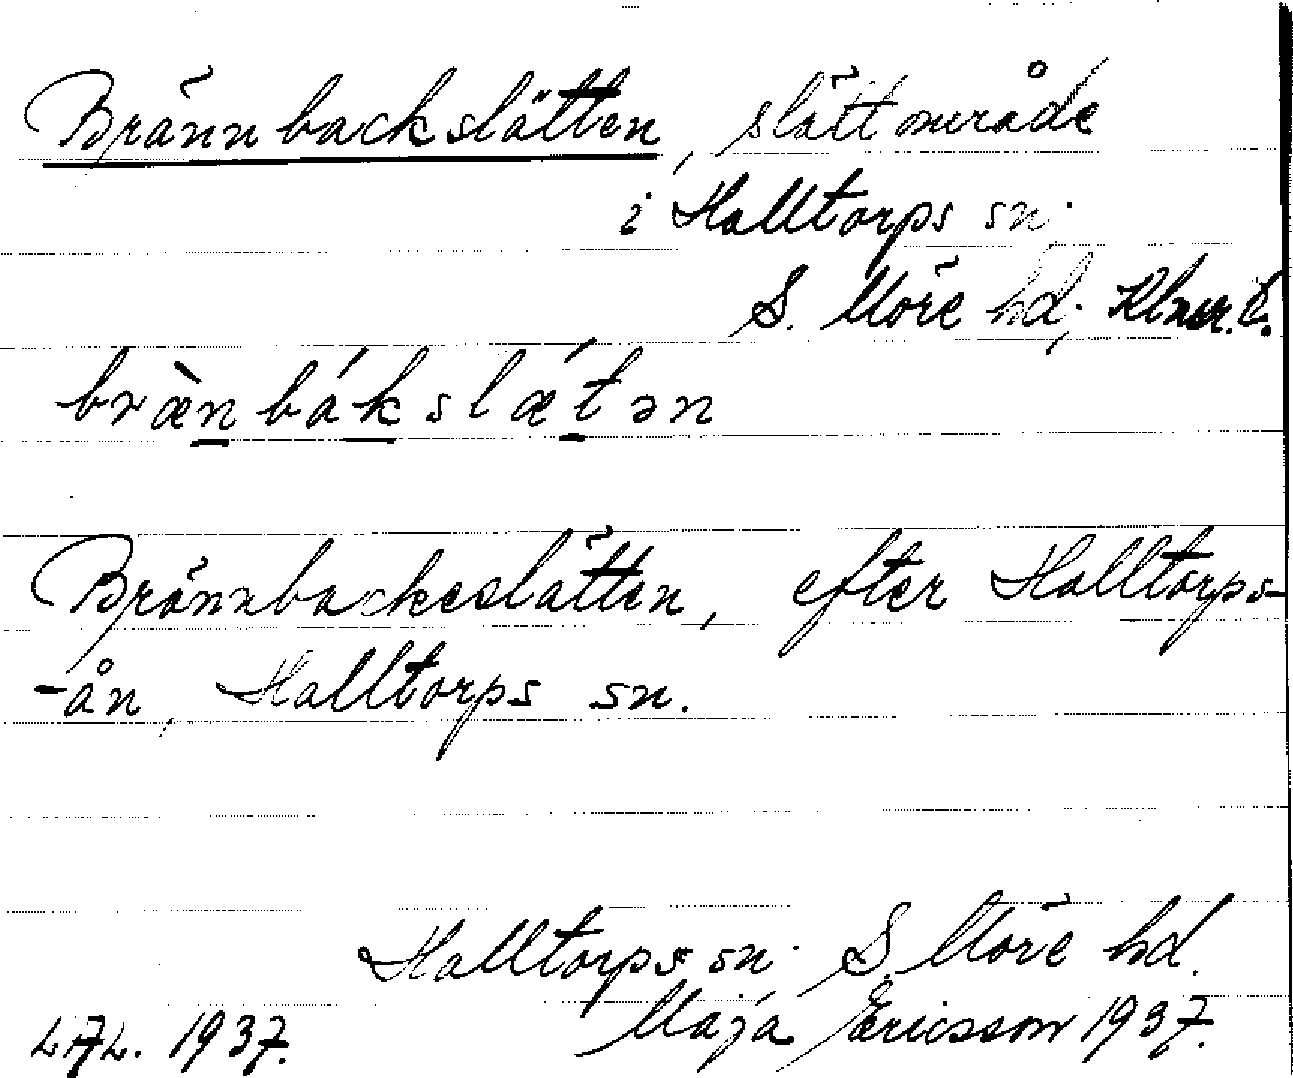 Brännbackslätten, slättområde
i Halltorps sn.
S. Möre hd; Klmr. l.
bræ̀nbákslǽtən
Brännbackeslätten, efter Halltorps-
-ån, Halltorps sn.
Halltorps sn. S. Möre hd.
Maja Ericsson 1937.
LAL. 1937.